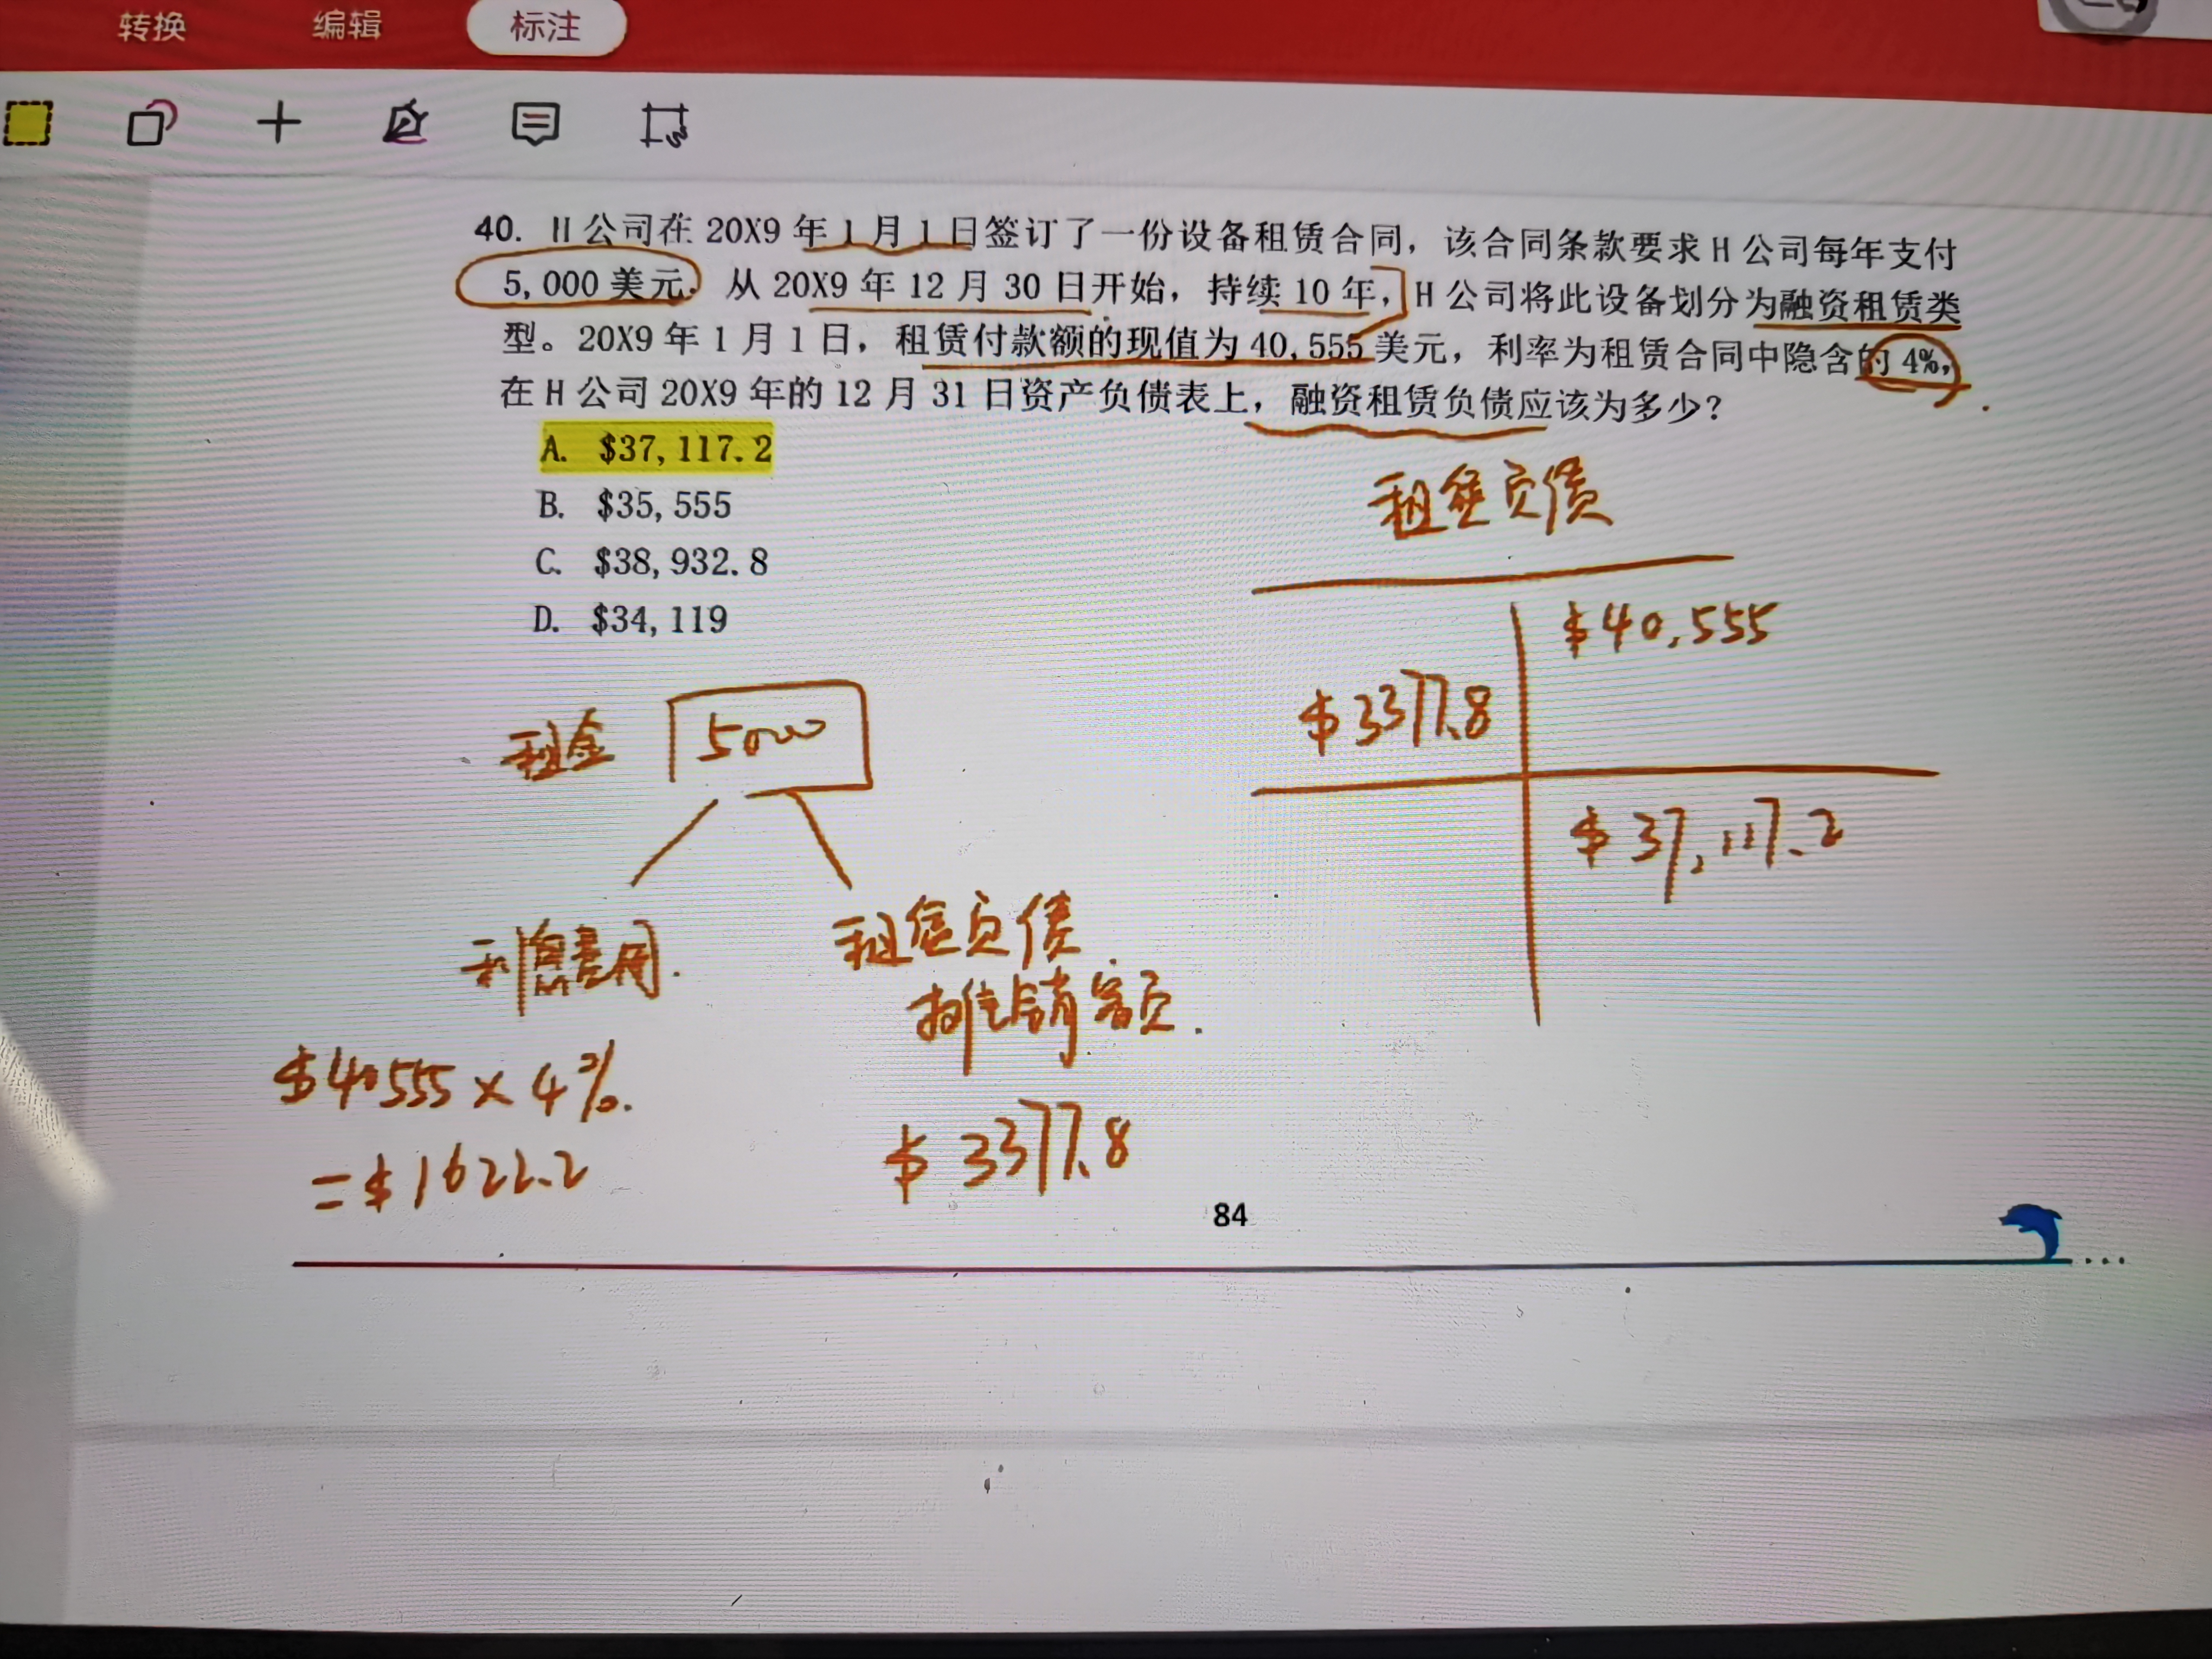 转换 编辑 标注
40. H 公司在 20X9 年 1 月 1 日签订了一份设备租赁合同，该合同条款要求 H 公司每年支付
5,000 美元. 从 20X9 年 12 月 30 日开始，持续 10 年，H 公司将此设备划分为融资租赁类
型。20X9 年 1 月 1 日，租赁付款额的现值为 40,555 美元，利率为租赁合同中隐含的 4%,
在 H 公司 20X9 年的 12 月 31 日资产负债表上，融资租赁负债应该为多少？
A. $37,117.2
B. $35,555
C. $38,932.8
D. $34,119
租赁负债
$40,555
$3377.8
$37,117.2
租金 5000
利息费用.
租赁负债
摊销额.
$40555 × 4%.
= $1622.2
$3377.8
84